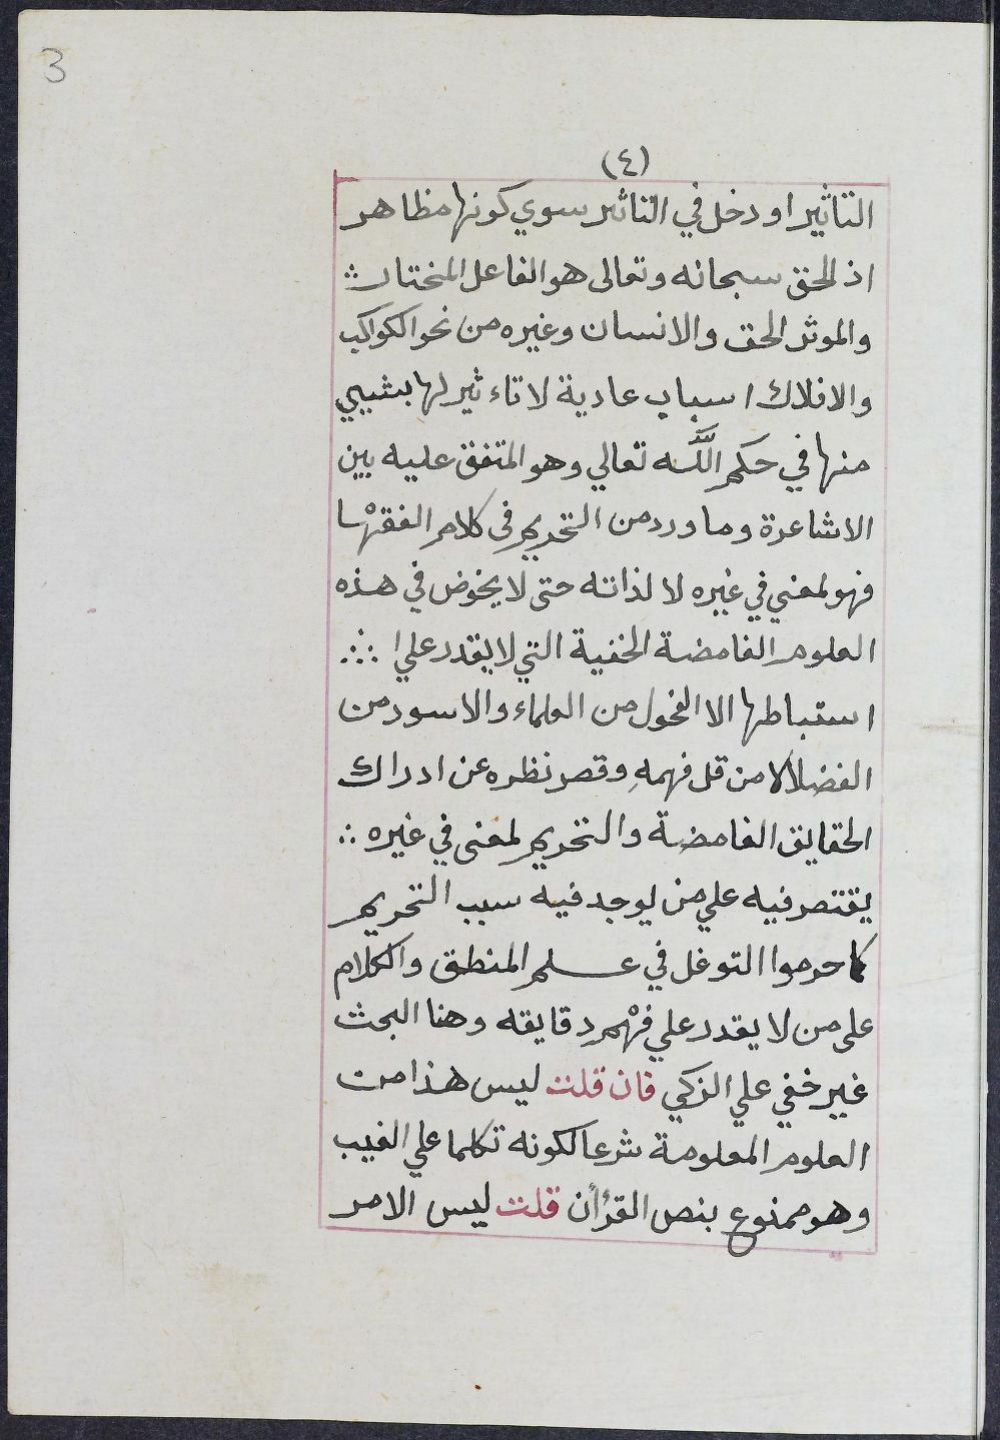 3
(٤)
التاثير او دخل في التاثير سوي كونها مظاهر
اذ الحق سبحانه وتعالى هو الفاعل المختار ::
والموثر الحق والانسان وغيره من نحو الكواكب
والافلاك اسباب عادية لا تاءثير لها بشيي
منها في حكم اللّه تعالي وهو المتفق عليه بين
الاشاعرة وما ورد من التحريم في كلام الفقهْا
فهو لمعني في غيره لا لذاته حتى لا يخوض في هذه
العلوم الغامضة الخفية التي لا يقدر علي ا ∴
استباطها الا الفحول من العلماء والاسود من
الفضلا لا من قل فهمهِ وقصر نظره عن ادراك
الحقايق الغامضة والتحريم لمعنى في غيره ∴
يقتصر فيه علي من يوجد فيه سبب التحريم
كما حرموا التوغل في علم المنطق والكلام
على من لا يقدر علي فهْم دقايقه وهنا البحث
غير خفي علي الزكي فان قلت ليس هذا من
العلوم المعلومة شرعا لكونه تكلما علي الغيب
وهو ممنوع بنص القرأن قلت ليس الامر